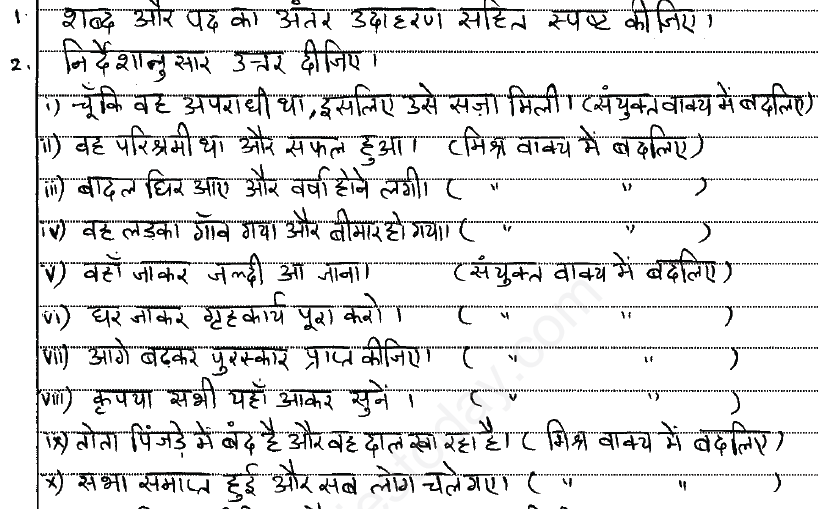 1. शब्द और पद का अंतर उदाहरण सहित स्पष्ट कीजिए।
2. निर्देशानुसार उत्तर दीजिए।
i) चूँकि वह अपराधी था, इसलिए उसे सज़ा मिली। (संयुक्त वाक्य में बदलिए)
ii) वह परिश्रमी था और सफल हुआ। (मिश्र वाक्य में बदलिए)
iii) बादल घिर आए और वर्षा होने लगी। ( " " )
iv) वह लड़का गाँव गया और बीमार हो गया। ( " " )
v) वहाँ जाकर जल्दी आ जाना। (संयुक्त वाक्य में बदलिए)
vi) घर जाकर गृहकार्य पूरा करो। ( " " )
vii) आगे बढ़कर पुरस्कार प्राप्त कीजिए। ( " " )
viii) कृपया सभी यहाँ आकर सुनें। ( " " )
ix) तोता पिंजड़े में बंद है और वह दाल खा रहा है। ( मिश्र वाक्य में बदलिए )
x) सभा समाप्त हुई और सब लोग चले गए। ( " " )